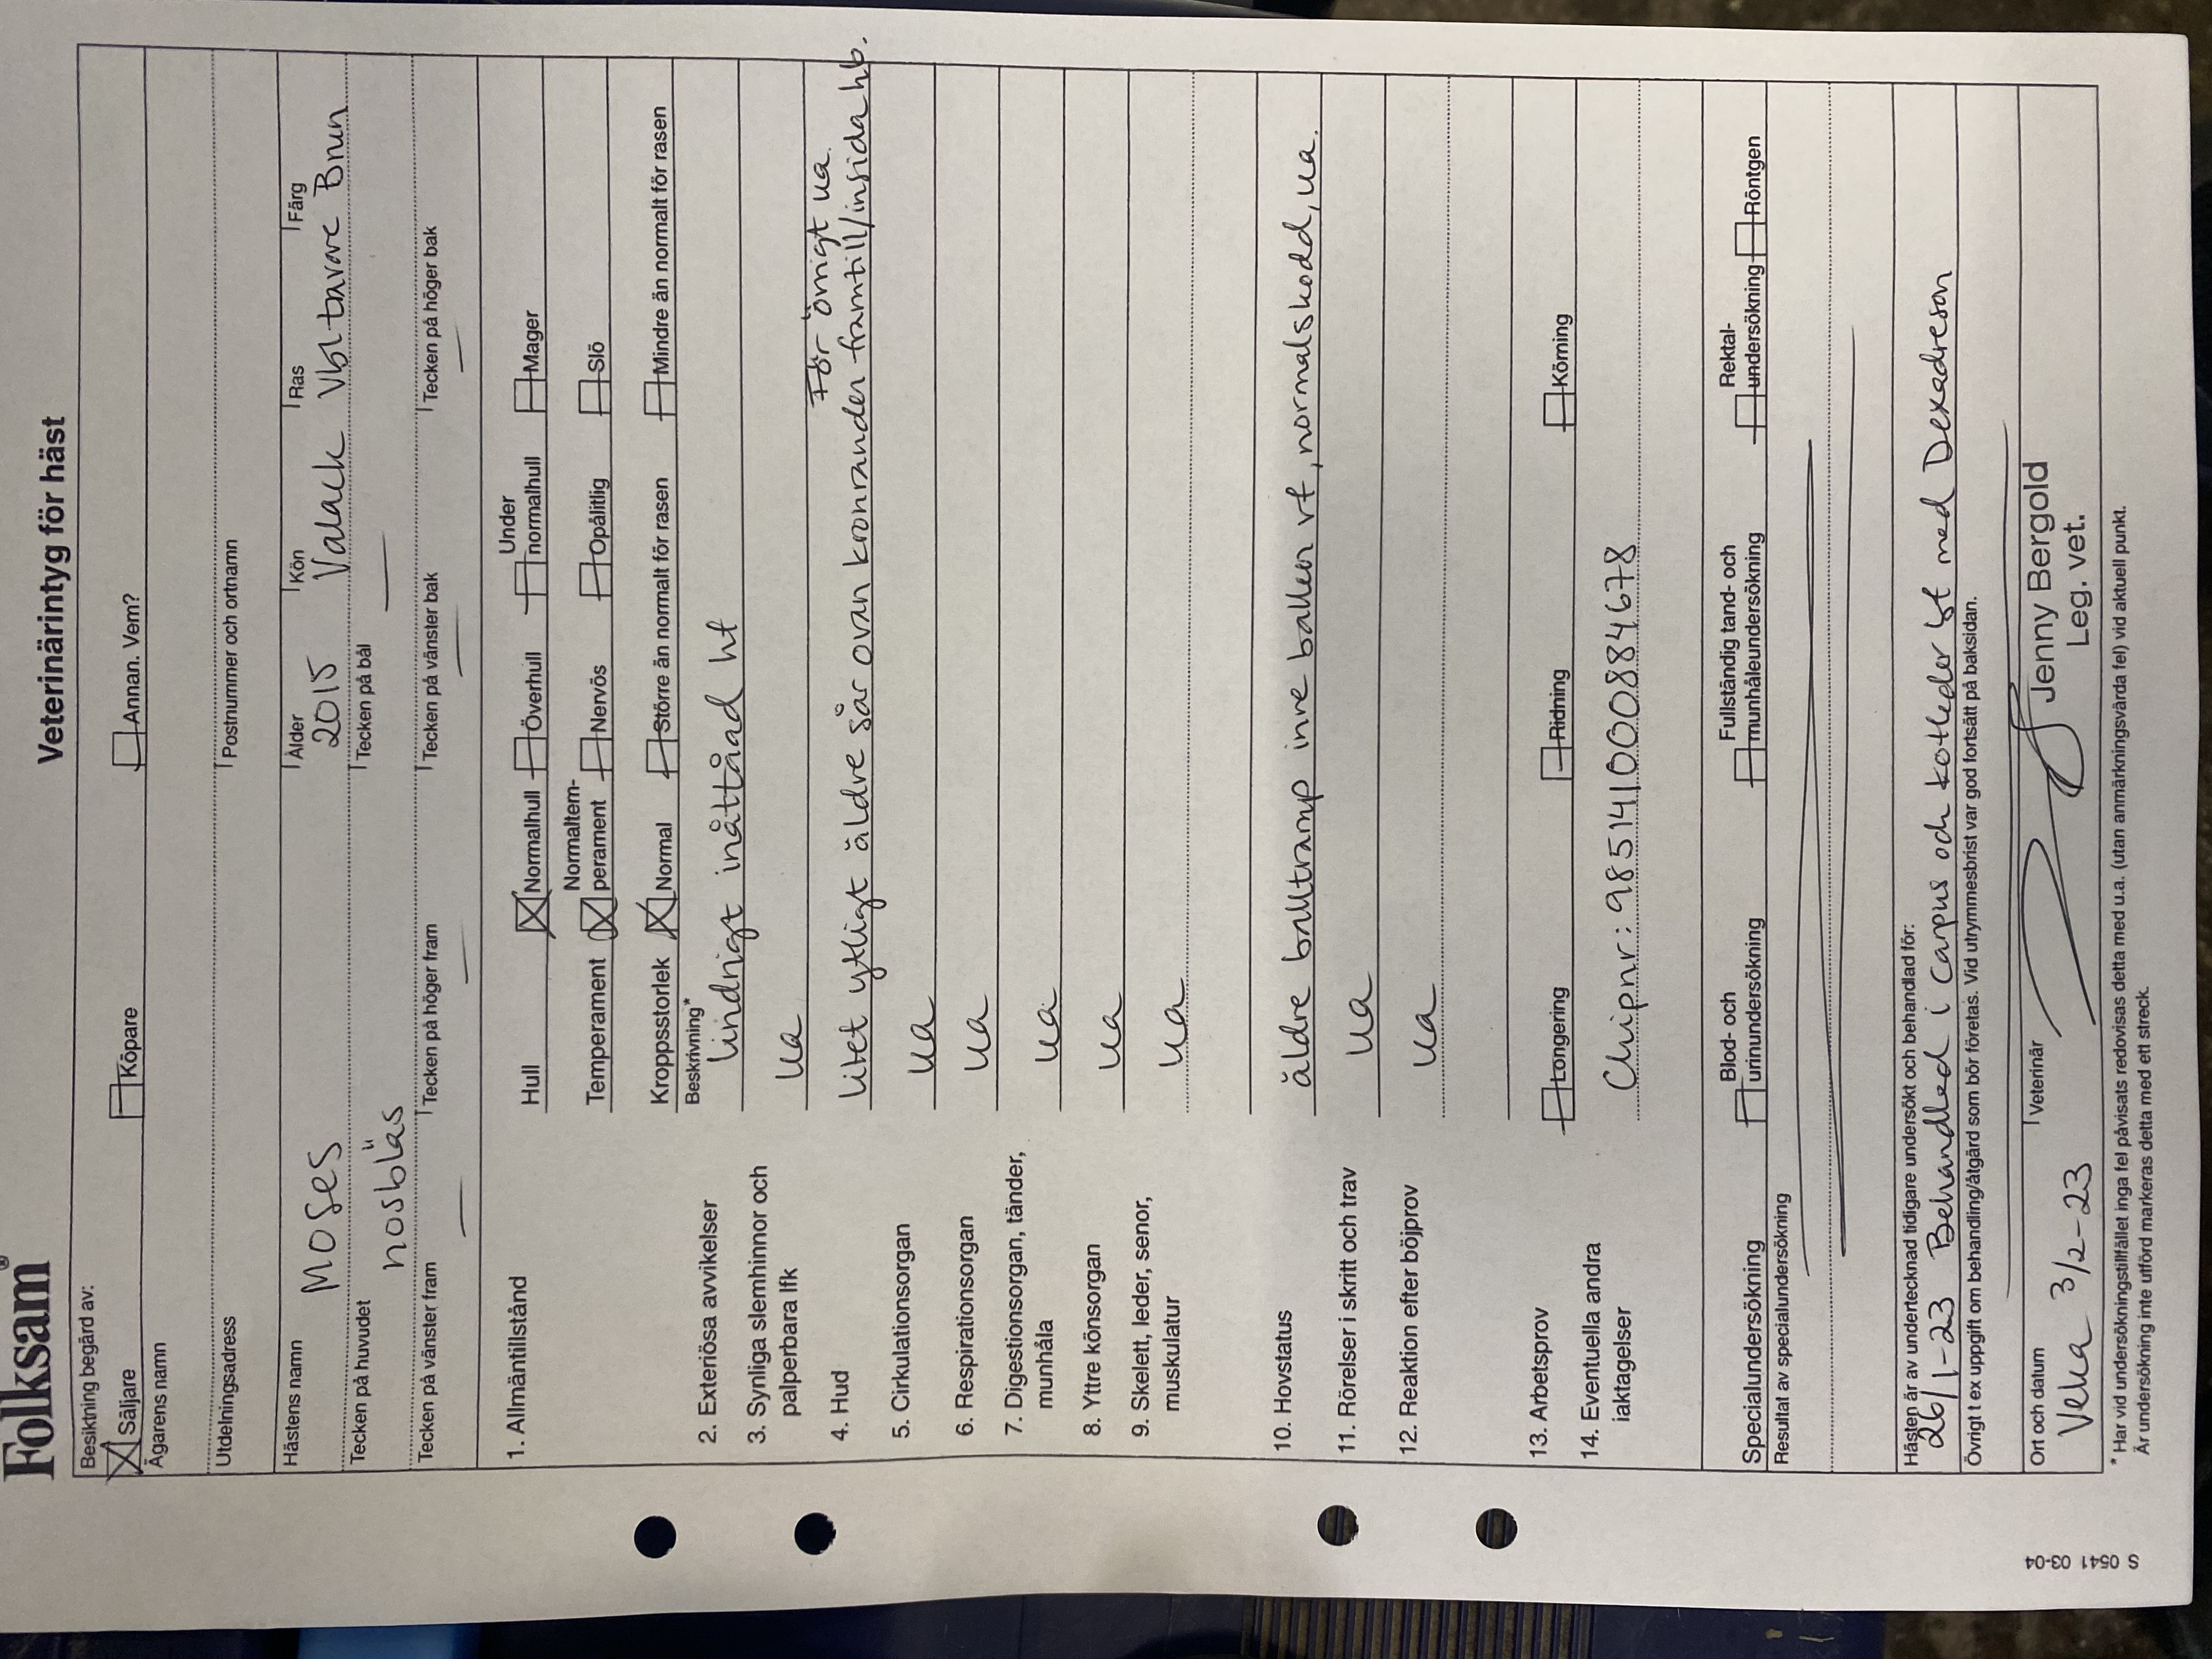 Folksam®
Veterinärintyg för häst
Besiktning begärd av:
Säljare Köpare Annan. Vem?
Ägarens namn
Utdelningsadress Postnummer och ortnamn
Hästens namn Ålder Kön Ras Färg
Moses 2015 Valack Vbl travare Brun
Tecken på huvudet Tecken på bål
nosbläs —
Tecken på vänster fram Tecken på höger fram Tecken på vänster bak Tecken på höger bak
— — — —
1. Allmäntillstånd Hull Normalhull Överhull Under normalhull Mager
Temperament Normaltem-perament Nervös Opålitlig Slö
Kroppsstorlek Normal Större än normalt för rasen Mindre än normalt för rasen
Beskrivning*
2. Exteriösa avvikelser lindrigt inåttåad hf
3. Synliga slemhinnor och
palperbara lfk ua
För övrigt ua.
4. Hud litet ytligt äldre sår ovan kronranden framtill/insida hb.
5. Cirkulationsorgan ua
6. Respirationsorgan ua
7. Digestionsorgan, tänder,
munhåla ua
8. Yttre könsorgan ua
9. Skelett, leder, senor,
muskulatur ua
10. Hovstatus äldre balltramp inre ballen vf, normalskodd, ua.
11. Rörelser i skritt och trav ua
12. Reaktion efter böjprov ua
13. Arbetsprov Longering Ridning Körning
14. Eventuella andra
iaktagelser Chipnr: 985141000884678
Specialundersökning Blod- och urinundersökning Fullständig tand- och munhåleundersökning Rektal-undersökning Röntgen
Resultat av specialundersökning
Hästen är av undertecknad tidigare undersökt och behandlad för:
26/1-23 Behandled i carpus och kotleder bf med Dexadreson
Övrigt t ex uppgift om behandling/åtgärd som bör företas. Vid utrymmesbrist var god fortsätt på baksidan.
Ort och datum Veterinär
Veka 3/2-23 Jenny Bergold
Leg. vet.
* Har vid undersökningstillfället inga fel påvisats redovisas detta med u.a. (utan anmärkningsvärda fel) vid aktuell punkt.
Är undersökning inte utförd markeras detta med ett streck.
S 0541 03-04